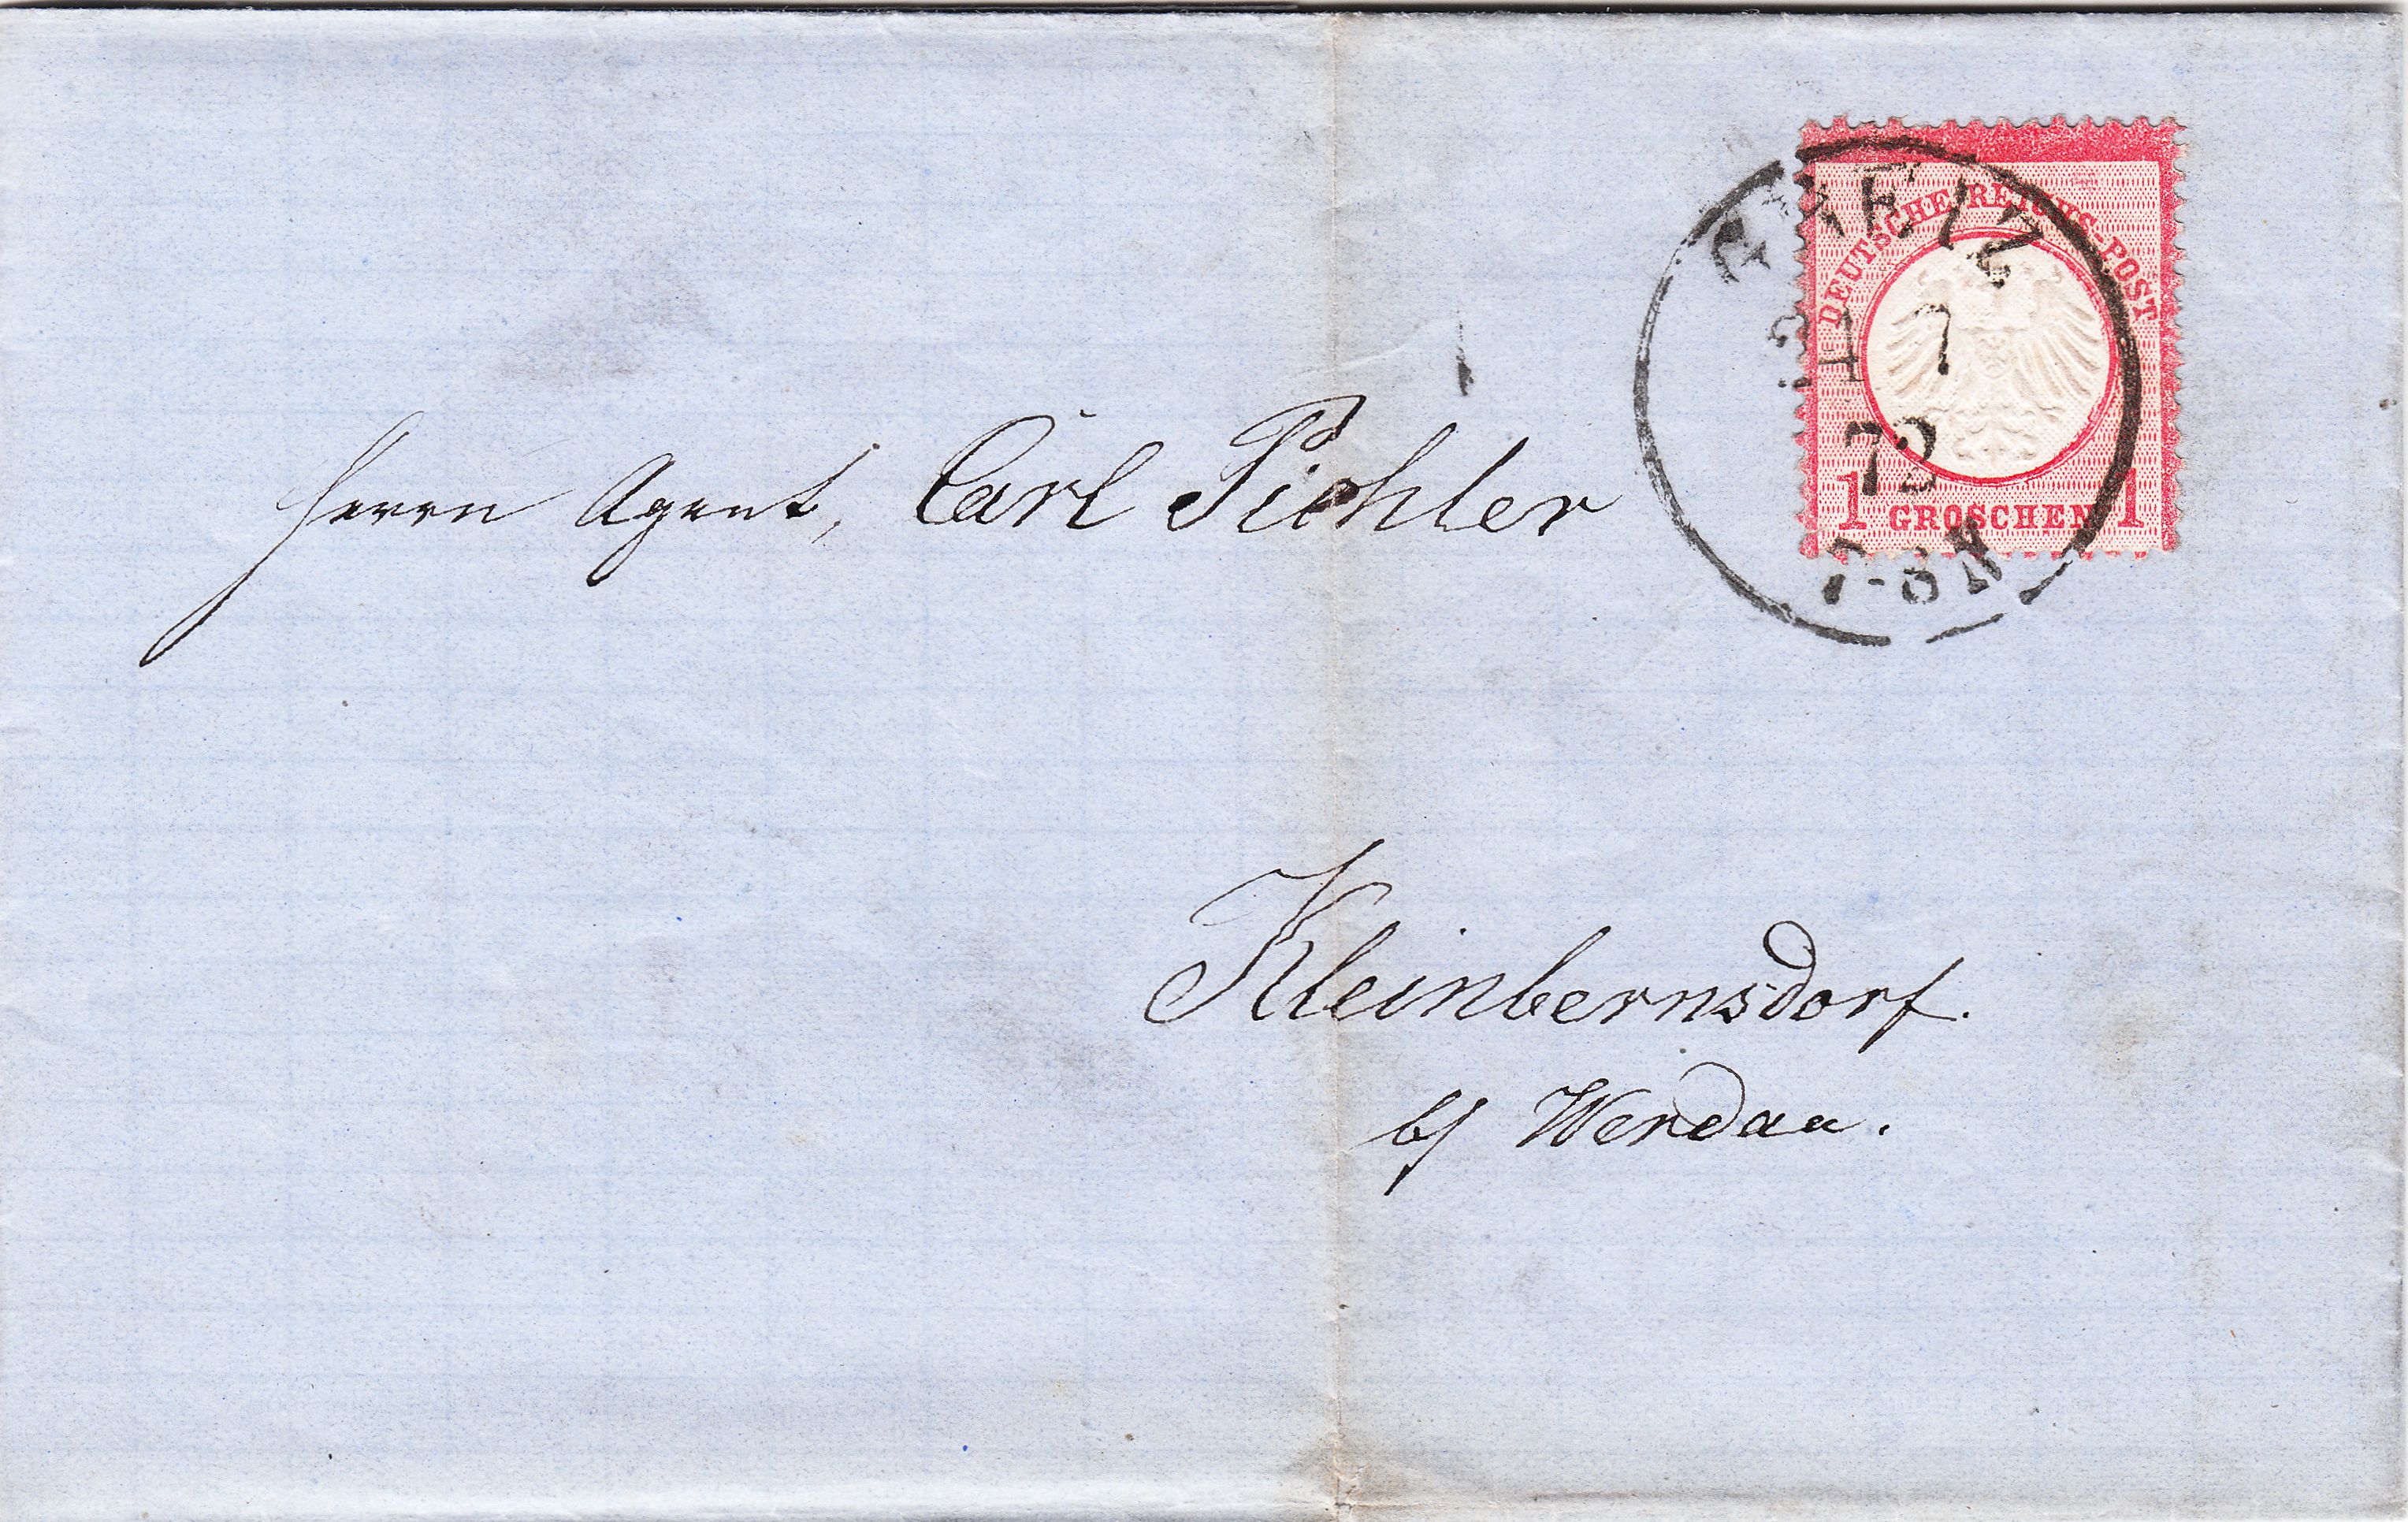 DEUTSCHE REICHS-POST
1 GROSCHEN 1
GREIZ
7
72
7-8N
Herrn Agent, Carl Pichler
Kleinbernsdorf.
b/ Werdau.